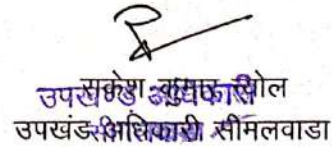 राकेश कुमार न्योल
उपखण्ड अधिकारी
उपखंड अधिकारी सीमलवाडा